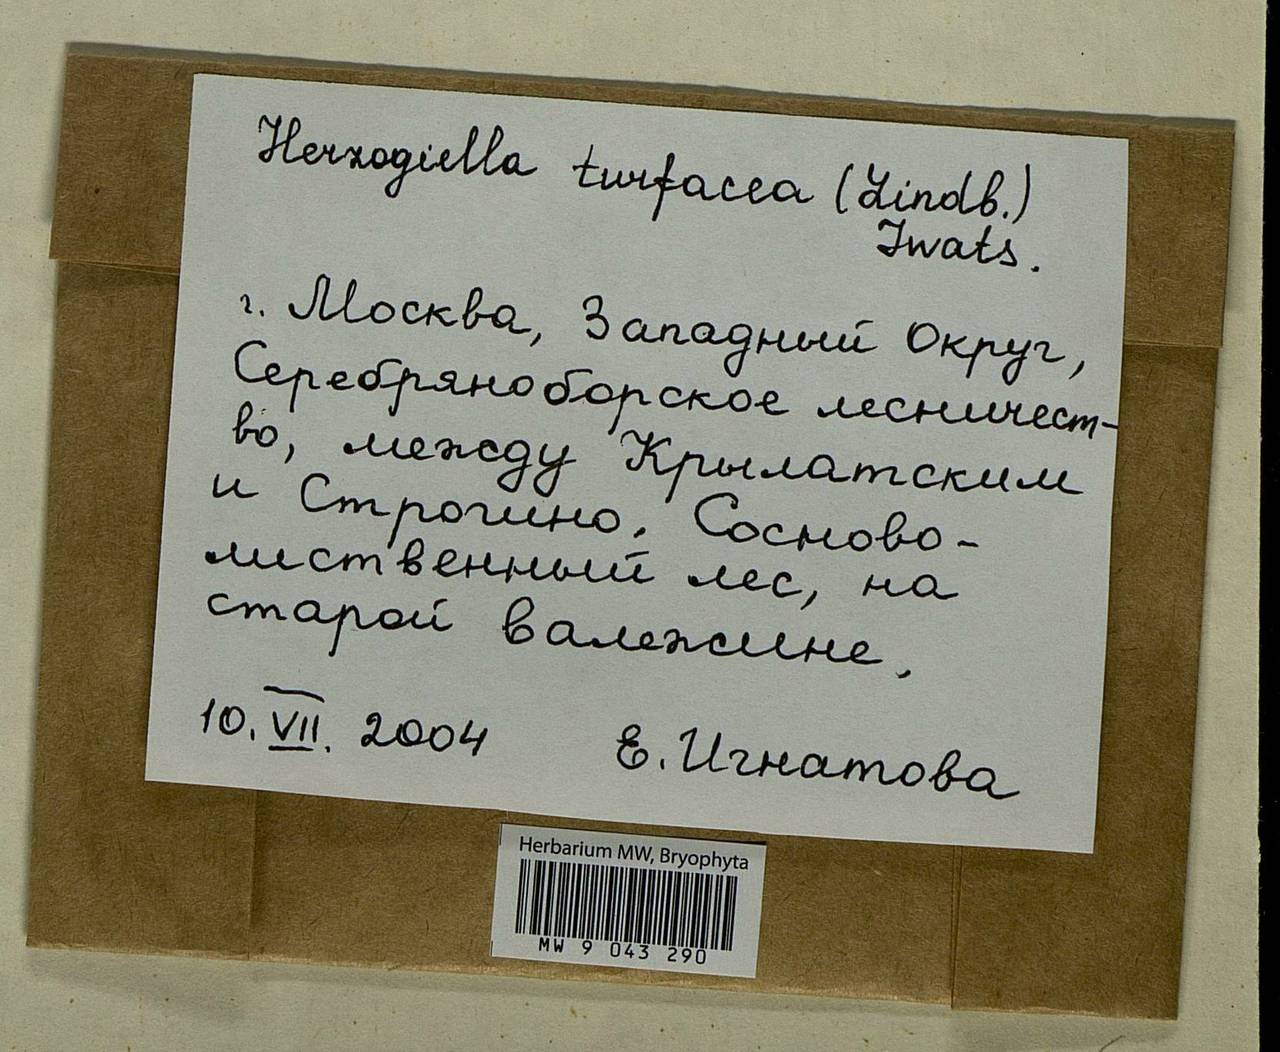 Herzogiella turfacea (Lindb.)
Iwats.
г. Москва, Западный Округ,
Серебряноборское лесничест-
во, между Крылатским
и Строгино. Сосново-
лиственный лес, на
старой валежине.
10.VII.2004 Е. Игнатова
Herbarium MW, Bryophyta
MW 9 043 290